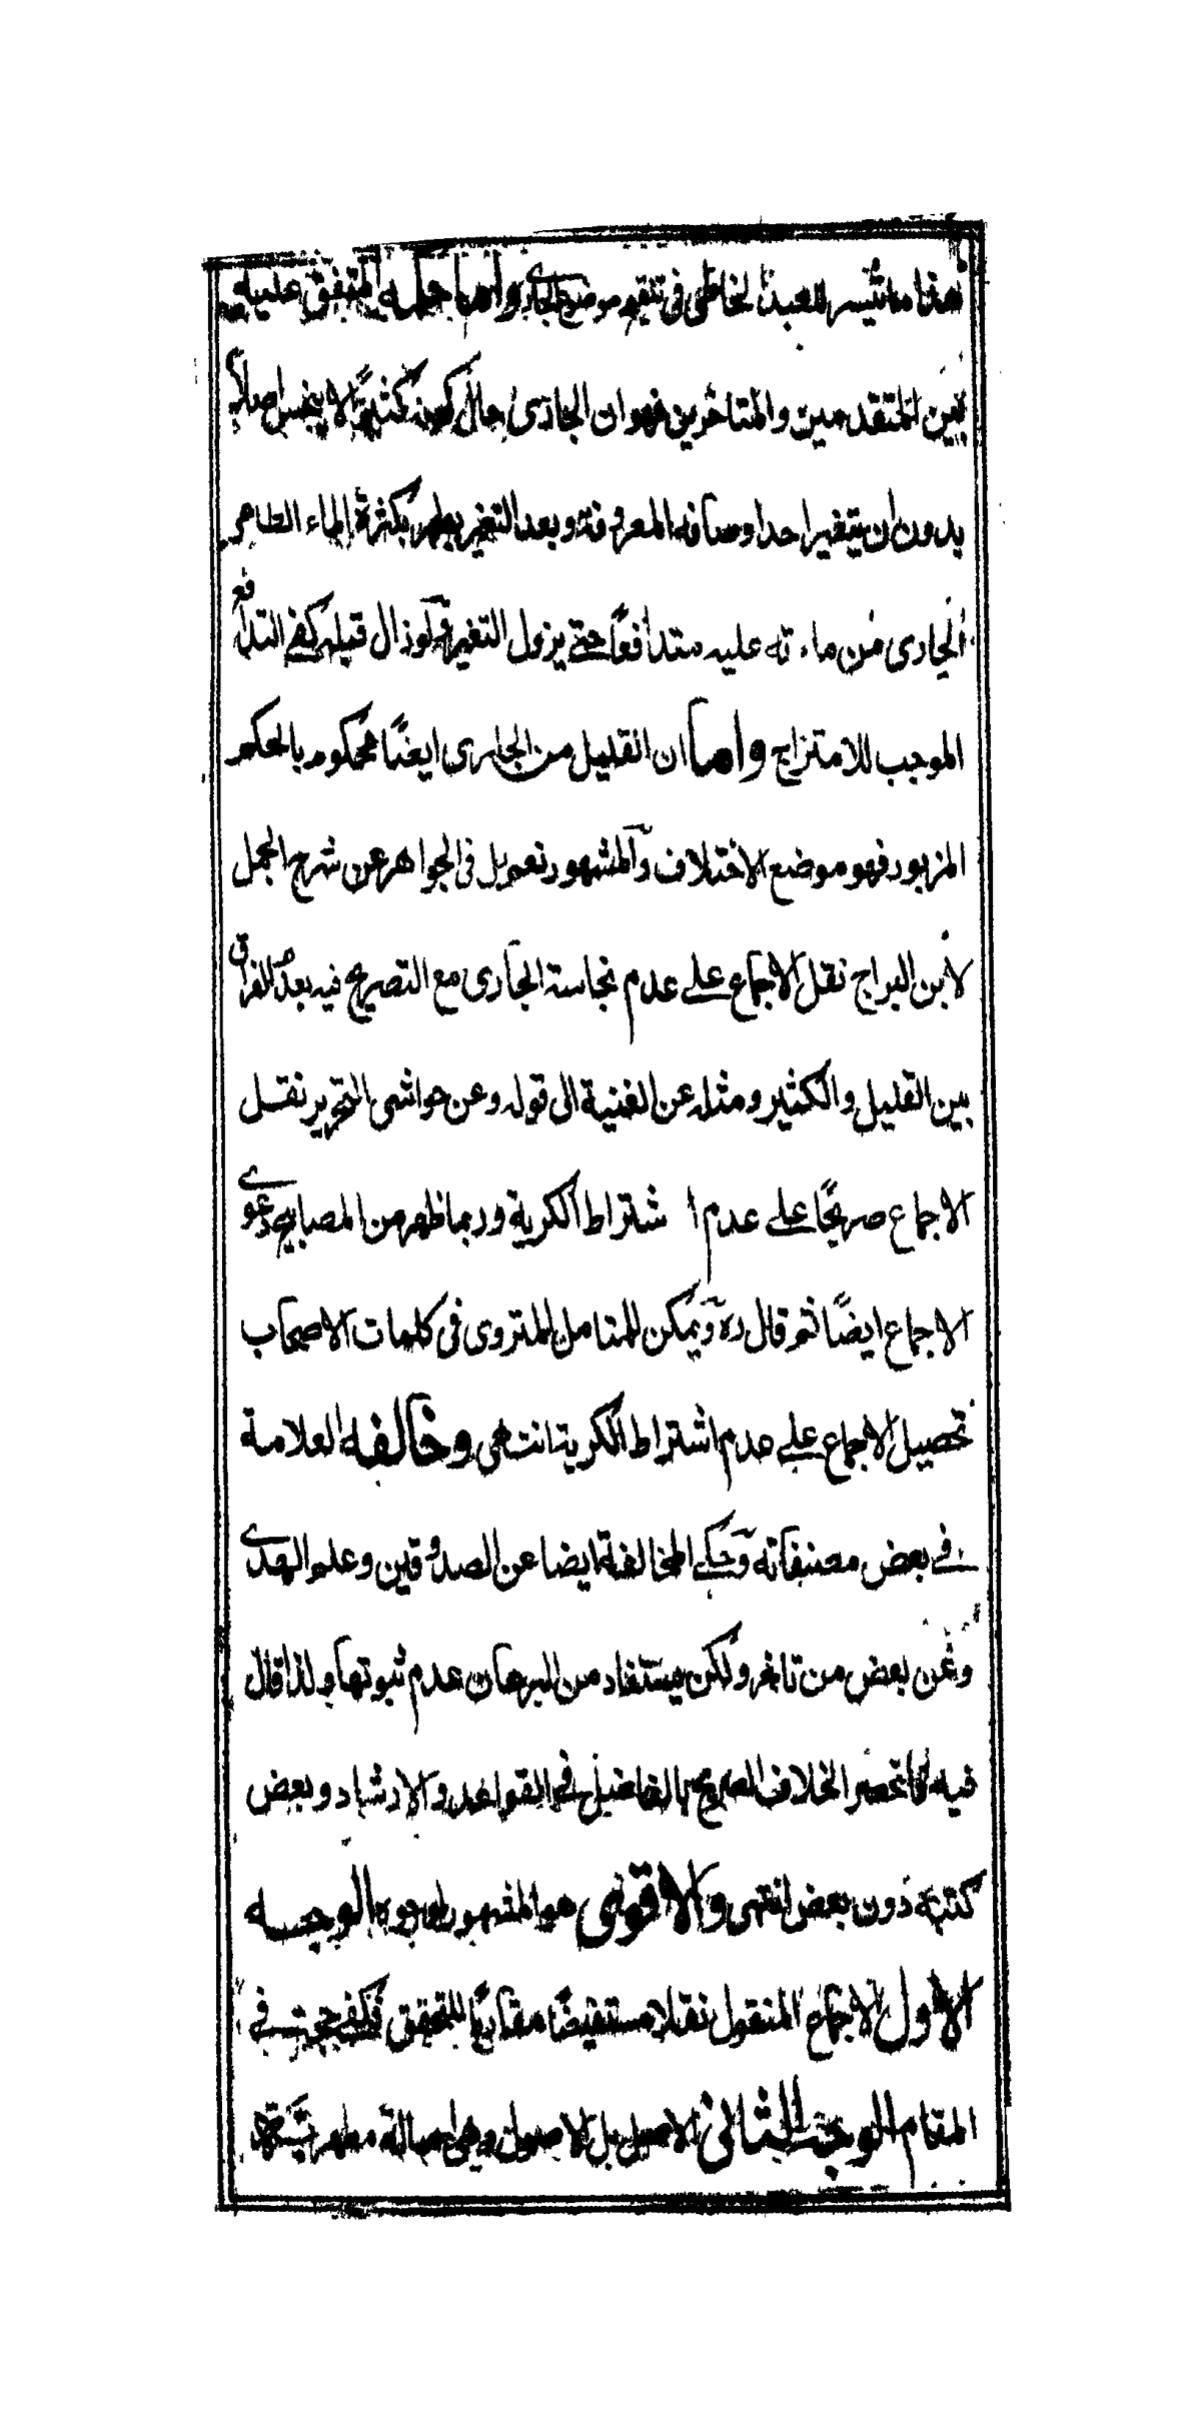 هذا ما تيسر للعبد الخاطى فى تنقيح موضع الجارى واما حكمه المتفق عليه
بين المتقدمين والمتاخرين فهو ان الجارى حال كونه كثيرًا لا ينجس اصلا
بدون ان يتغير احد اوصافه المعروفة وبعد التغير يطهر بكثرة الماء الطاهر
الجارى من مادته عليه متدافعًا حتى يزول التغير ولو زال قبله كفى التدافع
الموجب للامتزاج واما ان القليل من الجارى ايضًا محكوم بالحكم
المزبور فهو موضع الاختلاف والمشهور نعم بل فى الجواهر عن شرح الجمل
لابن البراج نقل الاجماع على عدم نجاسة الجارى مع التصريح فيه بعدم الفراق
بين القليل والكثير ومثله عن الغنية الى قوله وعن حواشى التحرير نقل
الاجماع صريحًا على عدم اشتراط الكرية وربما ظهر من المصابيح دعوى
الاجماع ايضًا ثم قال ره ويمكن للمتامل المتروى فى كلمات الاصحاب
تحصيل الاجماع على عدم اشتراط الكرية انتهى وخالفه العلامة
فى بعض مصنفاته وحكى المخالفة ايضا عن الصدوقين وعلم الهدى
وعن بعض من تاخر ولكن يستفاد من البرهان عدم ثبوتها ولذا قال
فيه فانحصر الخلاف الصريح بالفاضل فى القواعد والارشاد وبعض
كتبه دون بعض انتهى والاقوى هو المشهور لوجوه الوجه
الاول الاجماع المنقول نقلا مستفيضًا مقاربًا للتحقق فكفى حجة فى
المقام الوجه الثانى الاصل بل الاصول وهى اصالة مطهريته